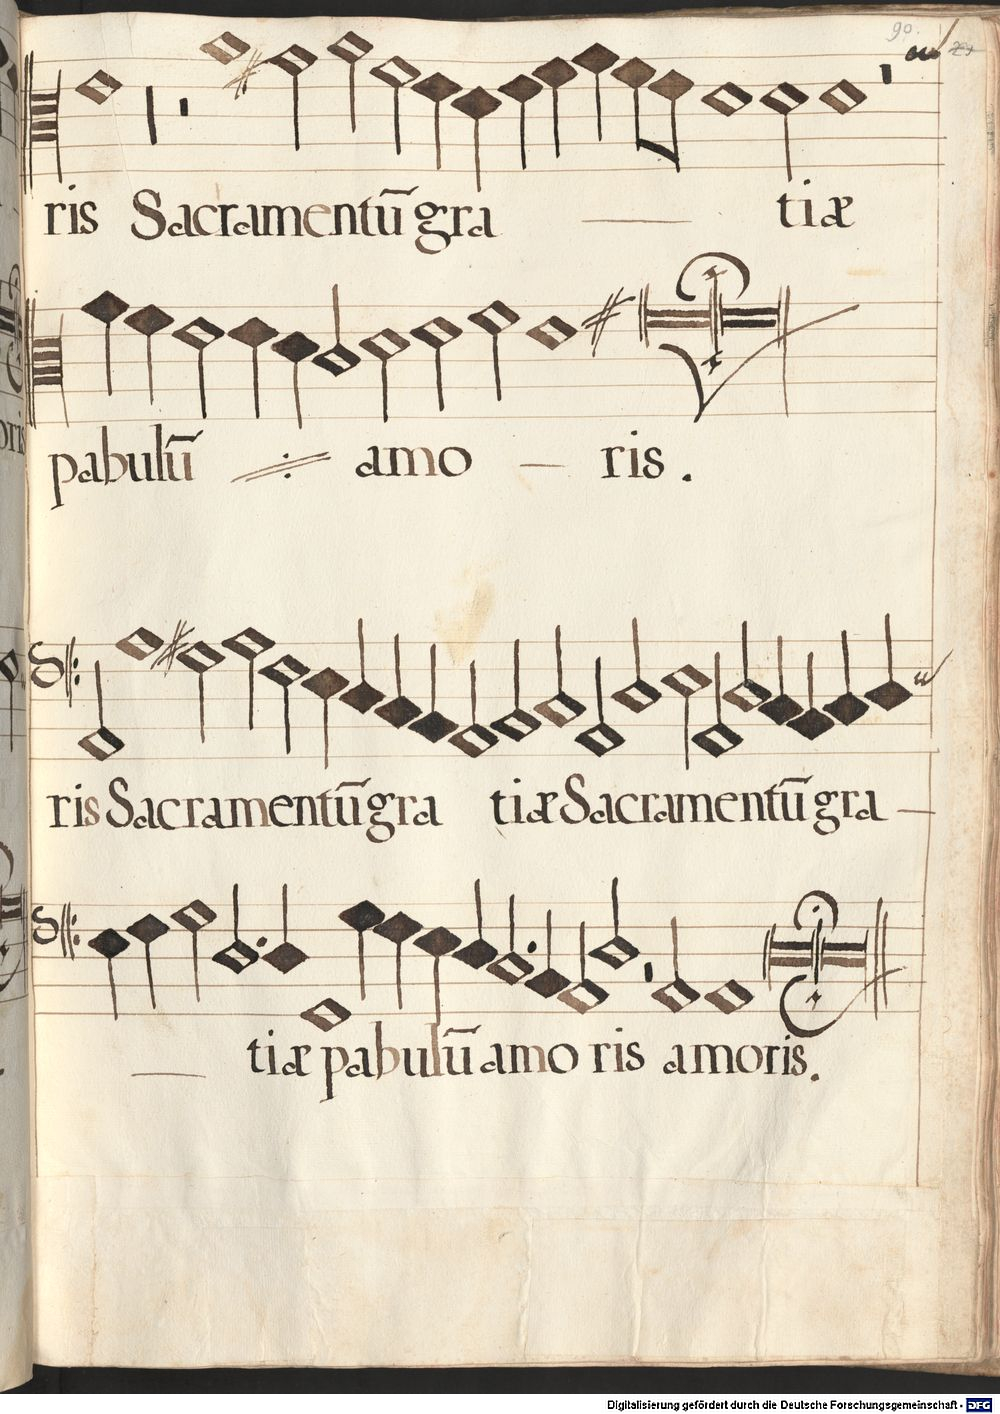 90.
ris Sacramentū gra — tiæ
pabulū ·/· amo — ris.
ris Sacramentū gra tiæ Sacramentū gra —
— tiæ pabulū amo ris amoris.
Digitalisierung gefördert durch die Deutsche Forschungsgemeinschaft - DFG